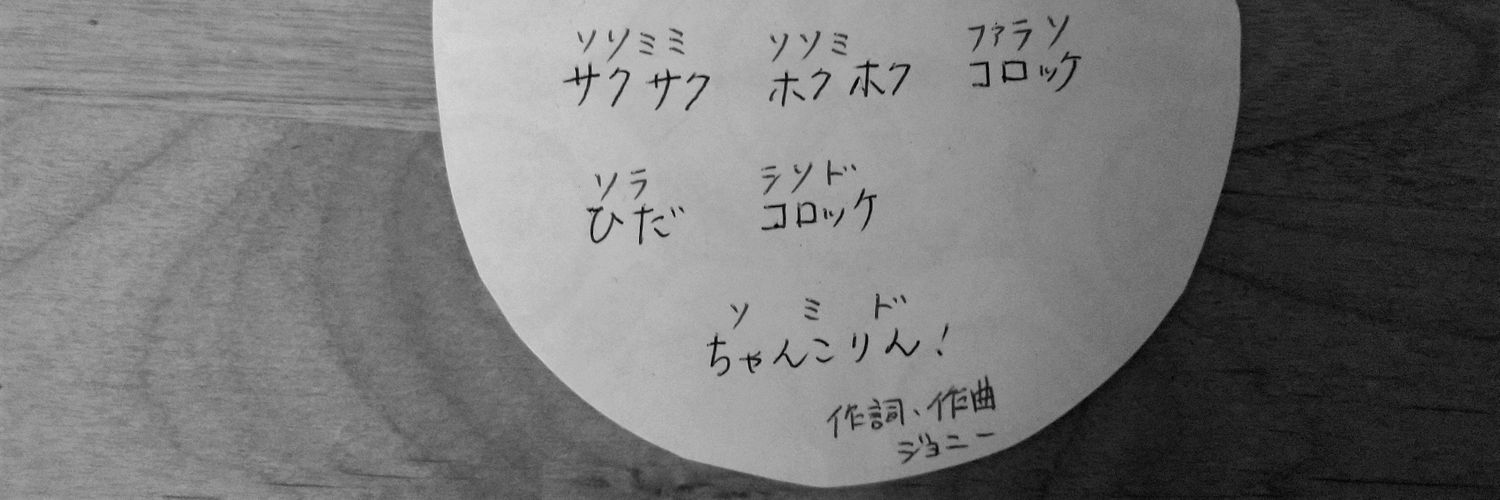 ソソミミ ソソミ ファラソ
サクサク ホクホク コロッケ
ソラ ラソド
ひだ コロッケ
ソ ミ ド
ちゃんこりん!
作詞、作曲
ジョニー